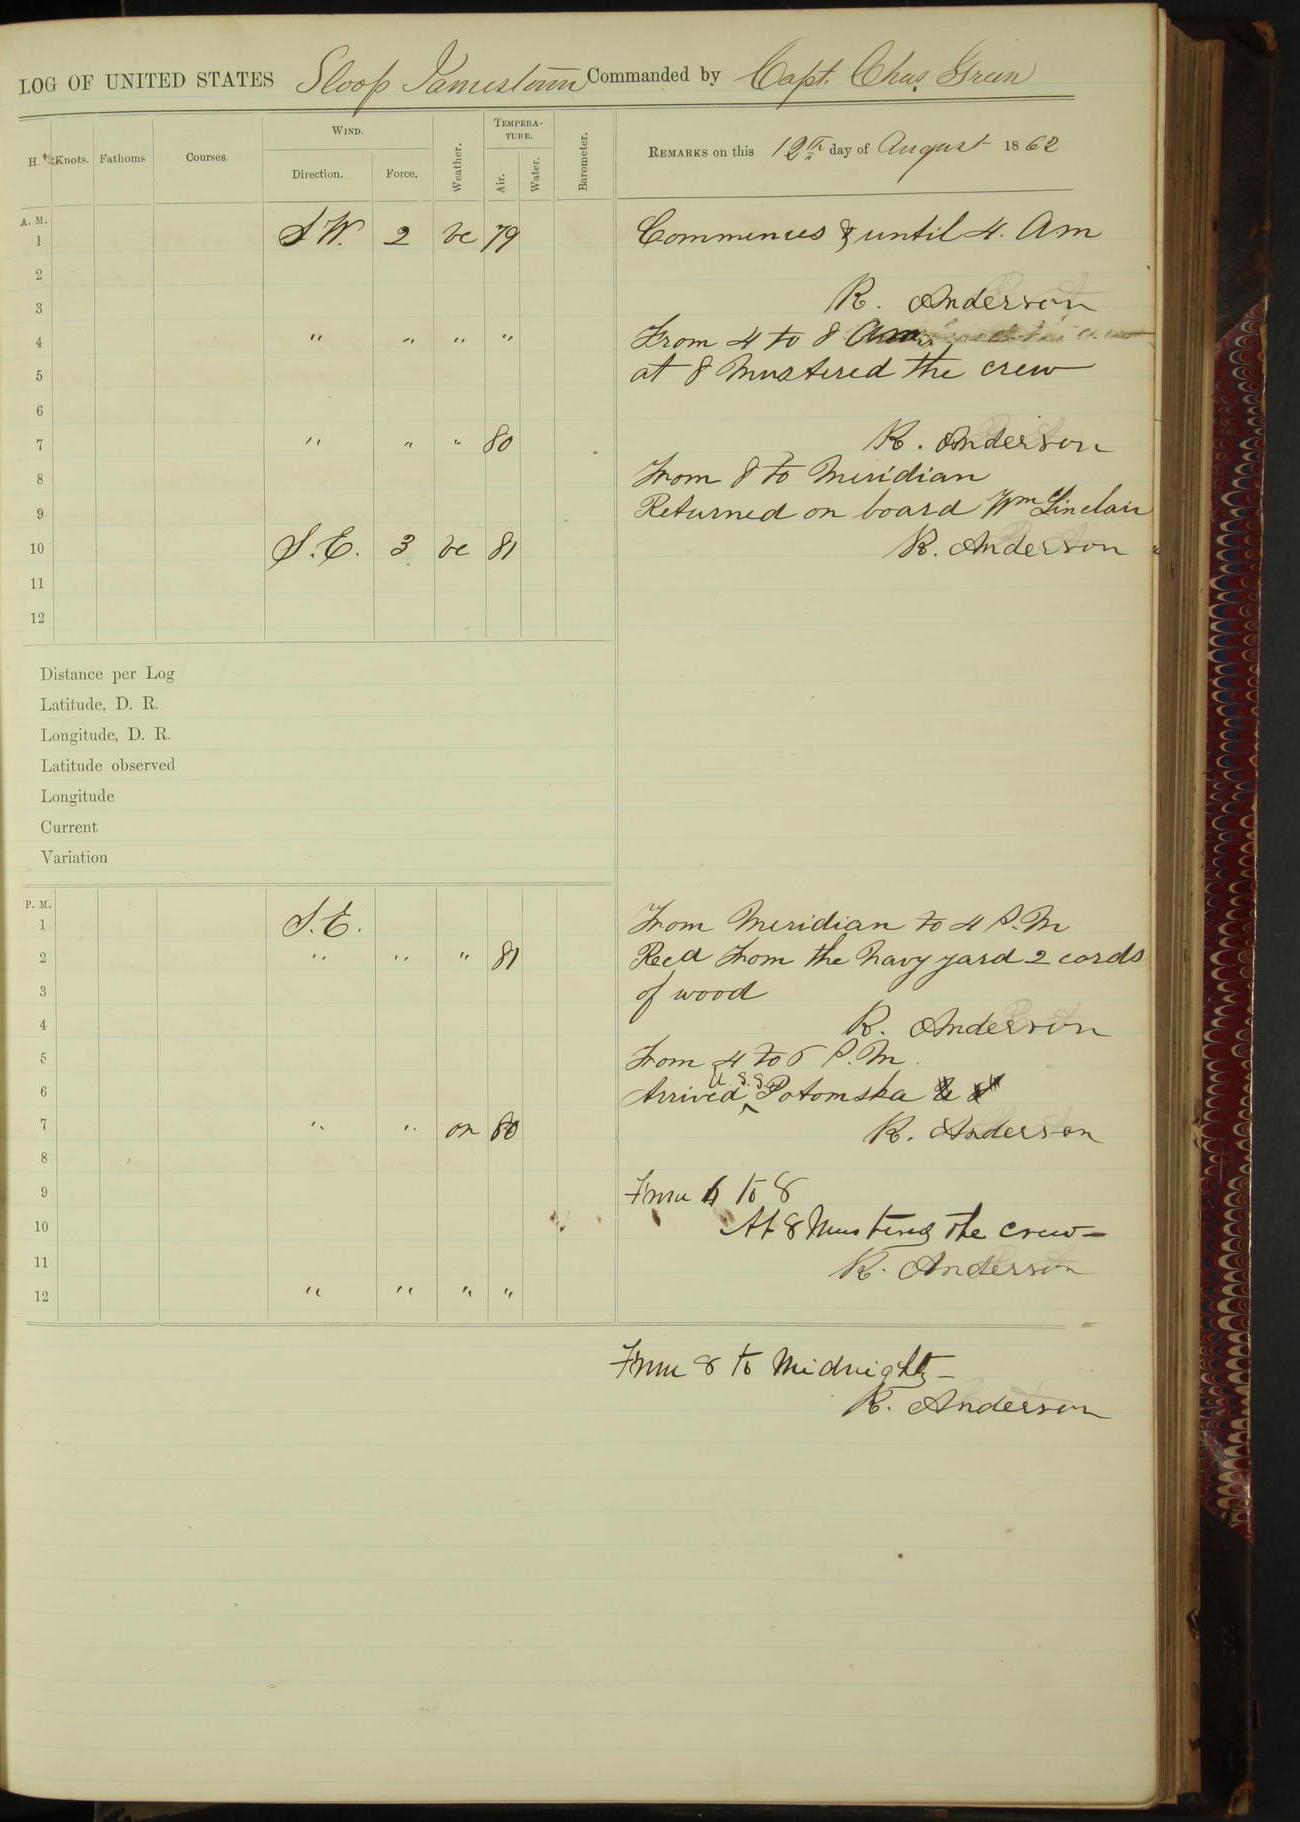 LOG OF UNITED STATES Sloop Jamestown Commanded by Capt. Chas. Green
H. Knots. Fathoms Courses. WIND. Direction. Force. Weather. TEMPERA-TURE. Air. Water. Barometer. REMARKS on this 12th day of August 1862
A. M.
1 S.W. 2 bc 79 Commences & until 4. Am
2
3 R. Anderson
4 " " " " From 4 to 8 Am
5 at 8 Mustered the crew
6
7 " " " 80 R. Anderson
8 From 8 to Meridian
9 Returned on board Wm Sinclair
10 S.E. 3 bc 81 R. Anderson
11
12
Distance per Log
Latitude, D. R.
Longitude, D. R.
Latitude observed
Longitude
Current
Variation
P. M.
1 S.E. From Meridian to 4 P.M
2 " " " 81 Recd from the Navy yard 2 cords
3 of wood
4 R. Anderson
5 From 4 to 6 P.M.
6 Arrived U.S.S. Potomska
7 " " or 80 R. Anderson
8
9 From 6 to 8
10 At 8 Mustered the crew—
11 R. Anderson
12 " " " "
From 8 to Midnight—
R. Anderson